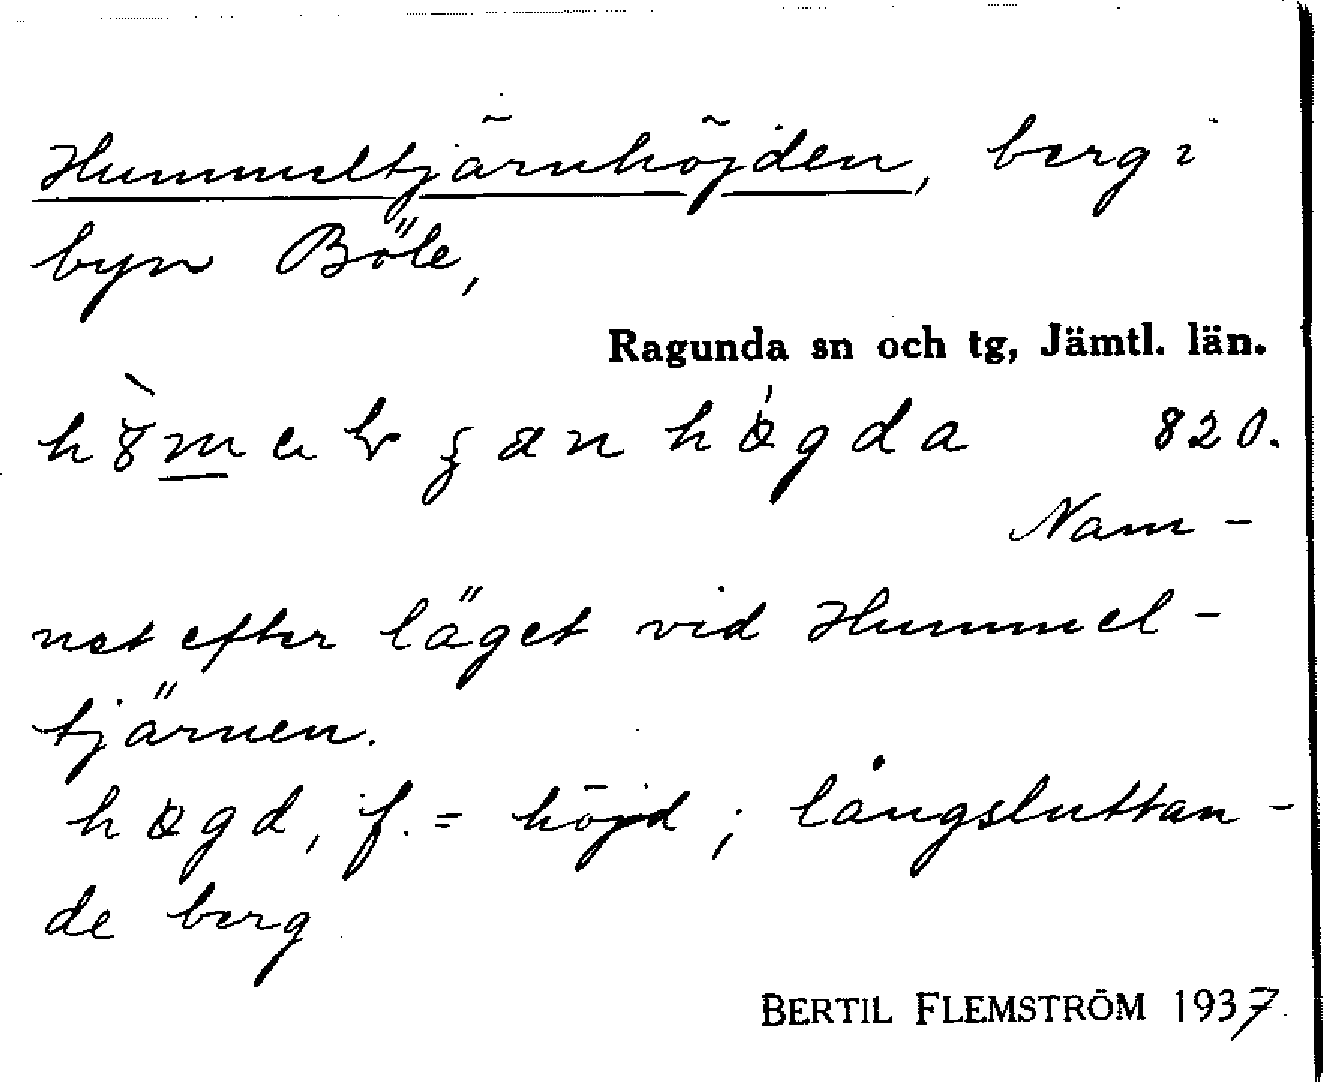 Hummeltjärnhöjden, berg i
byn Böle,
Ragunda sn och tg, Jämtl. län.
820.
Nam-
net efter läget vid Hummel-
tjärnen.
høgd, f. = höjd; långsluttan-
de berg
BERTIL FLEMSTRÖM 1937.